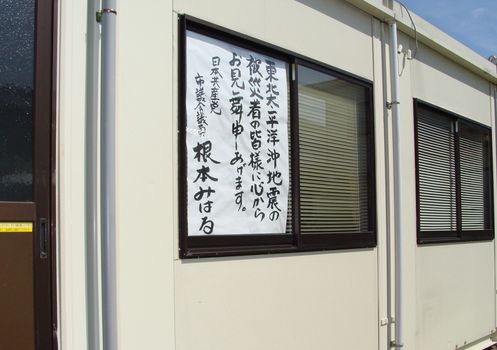 東北太平洋沖地震の
被災者の皆様に心から
お見舞申しあげます。
日本共産党
市議会議員 根本みはる